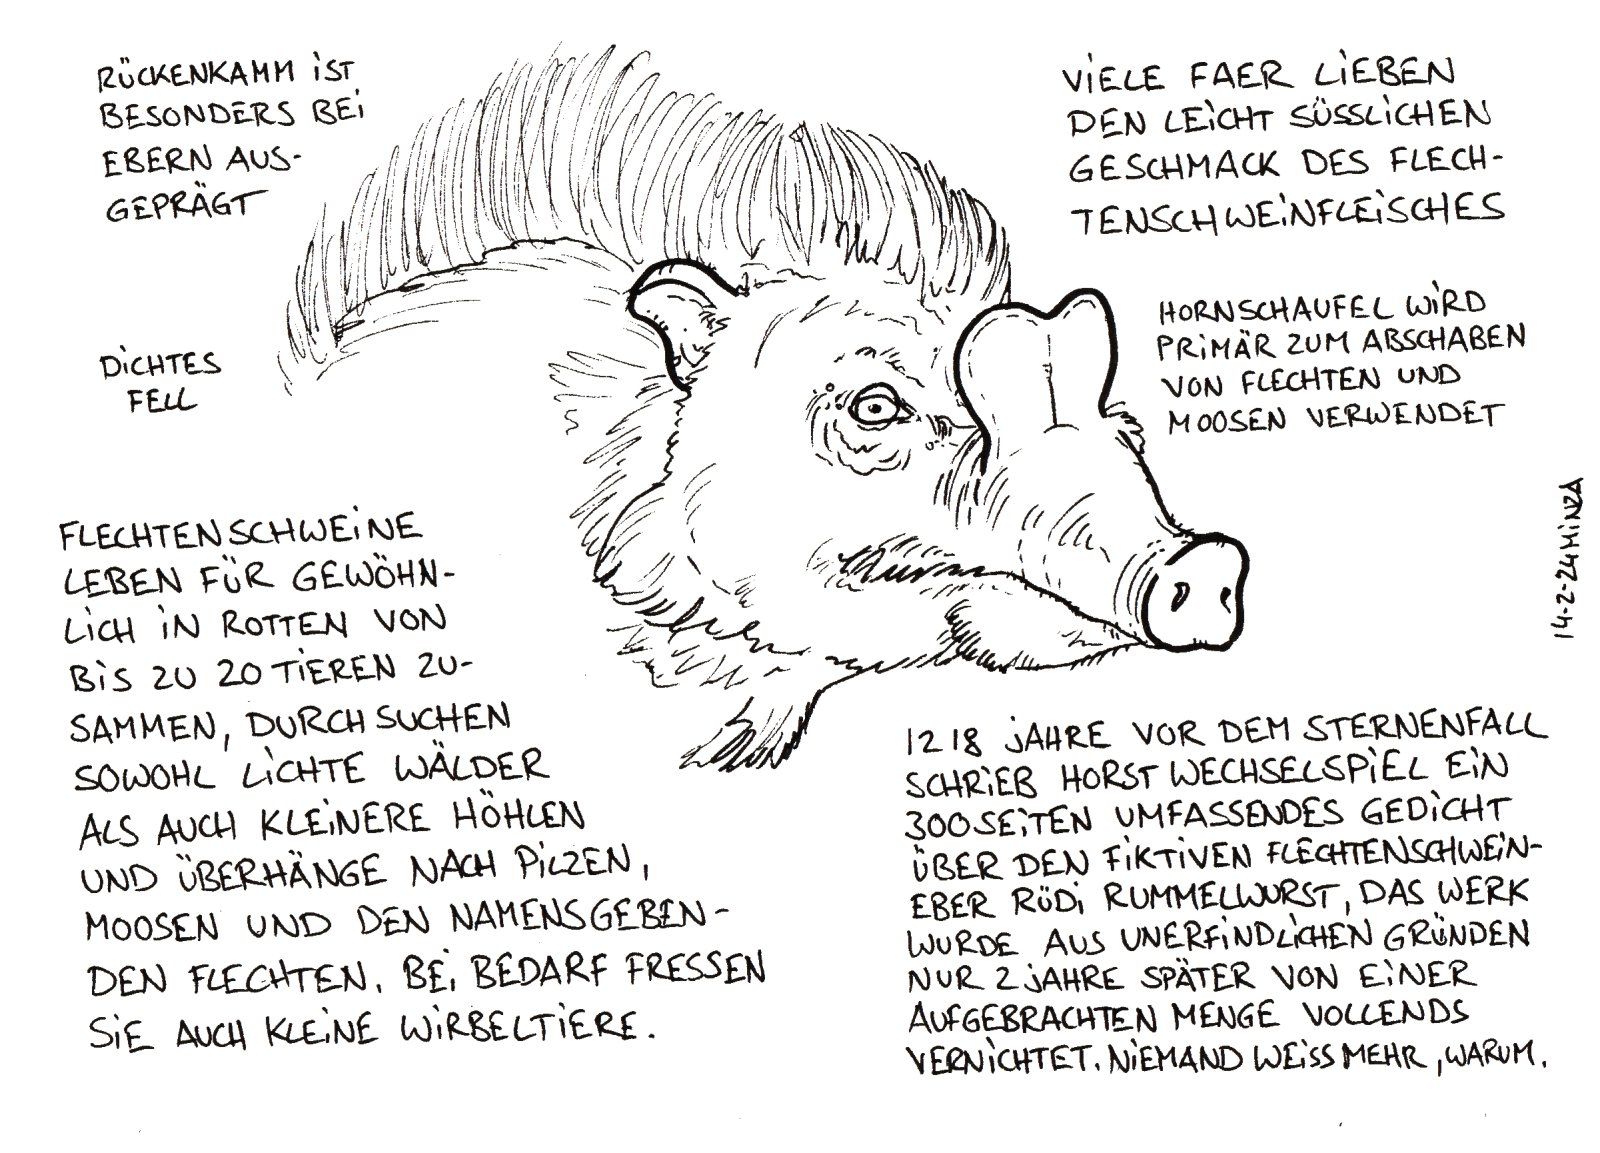 RÜCKENKAMM IST
BESONDERS BEI
EBERN AUS-
GEPRÄGT
VIELE FAER LIEBEN
DEN LEICHT SÜSSLICHEN
GESCHMACK DES FLECH-
TENSCHWEINFLEISCHES
HORNSCHAUFEL WIRD
PRIMÄR ZUM ABSCHABEN
VON FLECHTEN UND
MOOSEN VERWENDET
DICHTES
FELL
FLECHTENSCHWEINE
LEBEN FÜR GEWÖHN-
LICH IN ROTTEN VON
BIS ZU 20 TIEREN ZU-
SAMMEN, DURCHSUCHEN
SOWOHL LICHTE WÄLDER
ALS AUCH KLEINERE HÖHLEN
UND ÜBERHÄNGE NACH PILZEN,
MOOSEN UND DEN NAMENSGEBEN-
DEN FLECHTEN. BEI BEDARF FRESSEN
SIE AUCH KLEINE WIRBELTIERE.
1218 JAHRE VOR DEM STERNENFALL
SCHRIEB HORST WECHSELSPIEL EIN
300 SEITEN UMFASSENDES GEDICHT
ÜBER DEN FIKTIVEN FLECHTENSCHWEIN-
EBER RÜDI RUMMELWURST, DAS WERK
WURDE AUS UNERFINDLICHEN GRÜNDEN
NUR 2 JAHRE SPÄTER VON EINER
AUFGEBRACHTEN MENGE VOLLENDS
VERNICHTET. NIEMAND WEISS MEHR, WARUM.
14-2-24 HINZA